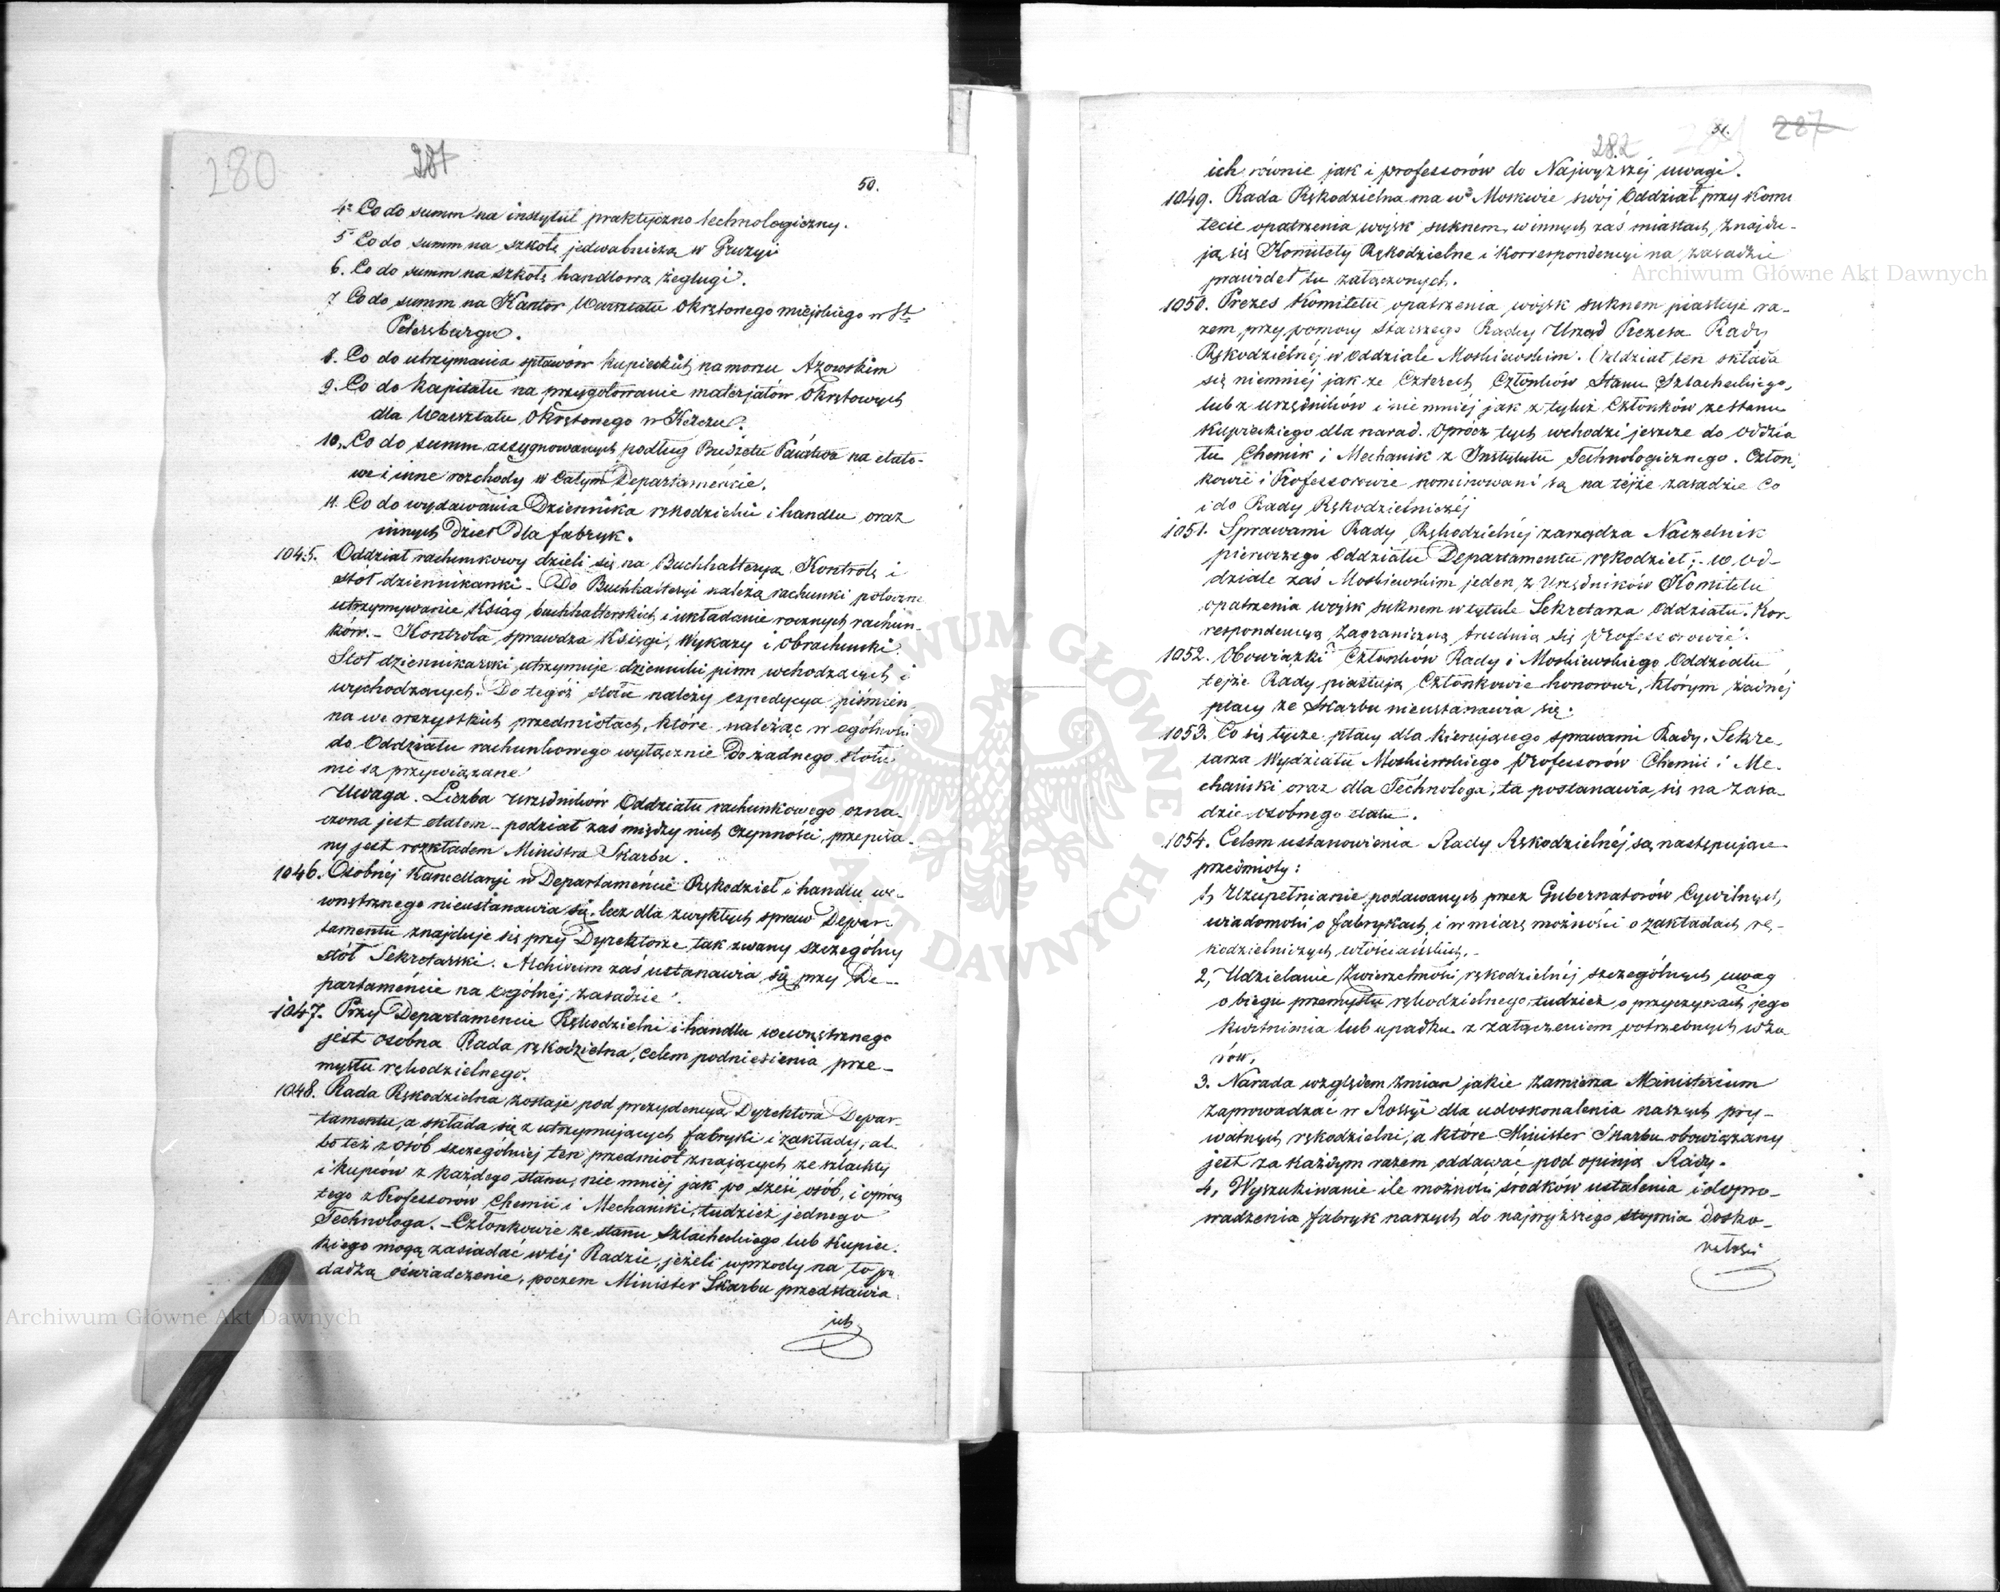 280
287
50.
4º Co do summ na instytut praktyczno technologiczny.
5 Co do summ na szkołę jedwabniczą w Gruzyi
6. Co do summ na szkołę handlową żeglugi.
7 Co do summ na Kantor Warsztatu Okrętowego miejskiego w St.
Petersburgu.
8. Co do utrzymania spławów kupieckich na morzu Azowskim
9. Co do kapitału na przygotowanie materjałów Okrętowych
dla Warsztatu Okrętowego w Kerczu.
10. Co do summ assygnowanych podług Budżetu Państwa na etato-
we i inne rozchody w całym Departamencie.
11. Co do wydawania Dziennika rękodzielni i handlu oraz
innych Dzieł dla fabryk.
1045. Oddział rachunkowy dzieli się na Buchhalterya, Kontrolę i
stół dziennikarski. Do Buchhalteryi należą rachunki potoczne
utrzymywanie Ksiąg buchhalterskich i układanie rocznych rachun-
ków. - Kontrola sprawdza Księgi, Wykazy i Obrachunki.
Stół dziennikarski utrzymuje dzienniki pism wchodzących i
wychodzących. Do tegoż stołu należy expedycya piśmien
na we wszystkich przedmiotach, które należąc w ogólności
do Oddziału rachunkowego wyłącznie Do żadnego stołu
nie są przywiązane.
Uwaga. Liczba urzędników Oddziału rachunkowego ozna-
czona jest etatem - podział zaś między nich czynności, przepisa-
ny jest rozkładem Ministra Skarbu.
1046. Osobnej Kancellaryi w Departamencie Rękodzieł i handlu we-
wnętrznego nieustanawia się, lecz dla zwykłych spraw Depar-
tamentu znajduje się przy Dyrektorze tak zwany szczególny
stół Sekretarski. Archiwum zaś ustanawia się przy De-
partamencie na ogólnej zasadzie.
1047. Przy Departamencie Rękodzielni i handlu wewnętrznego
jest osobna Rada rękodzielna, celem podniesienia prze-
mysłu rękodzielnego.
1048. Rada Rękodzielna zostaje pod prezydencyą Dyrektora Depar-
tamentu, a składa się z utrzymujących fabryki i zakłady, al-
bo też z osób szczególniej ten przedmiot znających ze szlachty
i kupców z każdego stanu, nie mniej jak po sześć osób, i oprócz
tego z Professorów Chemii i Mechaniki, tudzież jednego
Technologa. - Członkowie ze stanu Szlacheckiego lub Kupiec-
kiego mogą zasiadać w tej Radzie, jeżeli wprzody na to po
dadzą oświadczenie, poczem Minister Skarbu przedstawia
ich
282
51.
287
ich równie jak i professorów do Najwyższej uwagi.
1049. Rada Rękodzielna ma w Moskwie swój Oddział przy Komi
tecie opatrzenia wojsk suknem, w innych zaś miastach, znajdu-
ją się Komitety Rękodzielne i Korrespondencyi na zasadzie
prawideł tu załączonych.
1050. Prezes Komitetu opatrzenia wojsk suknem piastuje ra-
zem, przy pomocy Starszego Rady Urząd Prezesa Rady
Rękodzielnej w Oddziale Moskiewskim. Oddział ten składa
się niemniej jak ze Czterech Członków Stanu Szlacheckiego,
lub z urzędników i nie mniej jak z tyluż Członków ze stanu
Kupieckiego dla narad. Oprócz tych wchodzi jeszcze do Oddzia
łu Chemik i Mechanik z Instytutu Technologicznego. Człon-
kowie i Professorowie nominowani są na tejże zasadzie Co
i do Rady Rękodzielniczej
1051. Sprawami Rady Rękodzielnej zarządza Naczelnik
pierwszego Oddziału Departamentu rękodzieł; - w Od-
dziale zaś Moskiewskim jeden z Urzędników Komitetu
opatrzenia wojsk suknem w tytule Sekretarza Oddziału. Kor-
respondencyą Zagraniczną trudnią się Professorowie.
1052. Obowiązki Członków Rady i Moskiewskiego Oddziału
tejże Rady piastują Członkowie honorowi, którym żadnej
płacy ze Skarbu nieustanawia się.
1053. Co się tycze płacy dla kierującego sprawami Rady, Sekre-
tarza Wydziału Moskiewskiego Professorów Chemii i Me-
chaniki oraz dla Technologa, ta postanawia się na zasa-
dzie osobnego etatu.
1054. Celem ustanowienia Rady Rękodzielnej są następujące
przedmioty:
1, Uzupełnianie podawanych przez Gubernatorów Cywilnych,
wiadomości o fabrykach i w miarę możności o zakładach rę-
kodzielniczych włościańskich. -
2, Udzielanie Zwierzchności rękodzielnej szczególnych uwag
o biegu przemysłu rękodzielnego, tudzież o przyczynach jego
kwitnienia lub upadku z załączeniem potrzebnych wzo
rów.
3. Narada względem zmian jakie zamierza Ministerium
zaprowadzać w Rossyi dla udoskonalenia naszych pry-
watnych rękodzielni, a które Minister Skarbu obowiązany
jest za każdym razem oddawać pod opinią Rady.
4, Wyszukiwanie ile możności środków ustalenia i dopro-
wadzenia fabryk naszych do najwyższego stopnia dosko-
nałości
Archiwum Główne Akt Dawnych
Archiwum Główne Akt Dawnych
ARCHIWUM GŁÓWNE AKT DAWNYCH